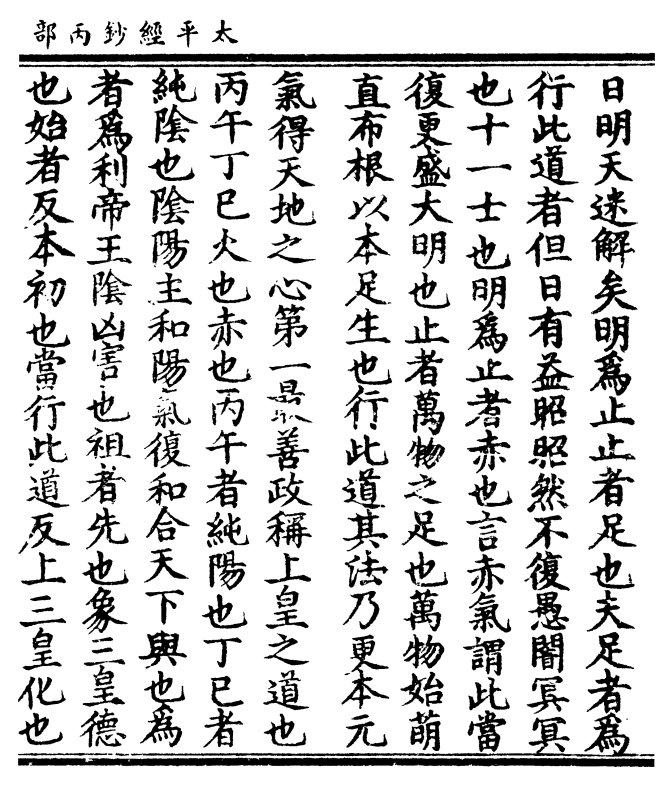 太平經鈔丙部
日明天迷解矣明爲止止者足也夫足者爲
行此道者但日有益昭昭然不復愚闇冥冥
也十一士也明爲止者赤也言赤氣謂此當
復更盛大明也止者萬物之足也萬物始萌
直布根以本足生也行此道其法乃更本元
氣得天地之心第一最善政稱上皇之道也
丙午丁巳火也赤也丙午者純陽也丁巳者
純陰也陰陽主和陽氣復和合天下興也爲
者爲利帝王陰凶害也祖者先也象三皇德
也始者反本初也當行此道反上三皇化也